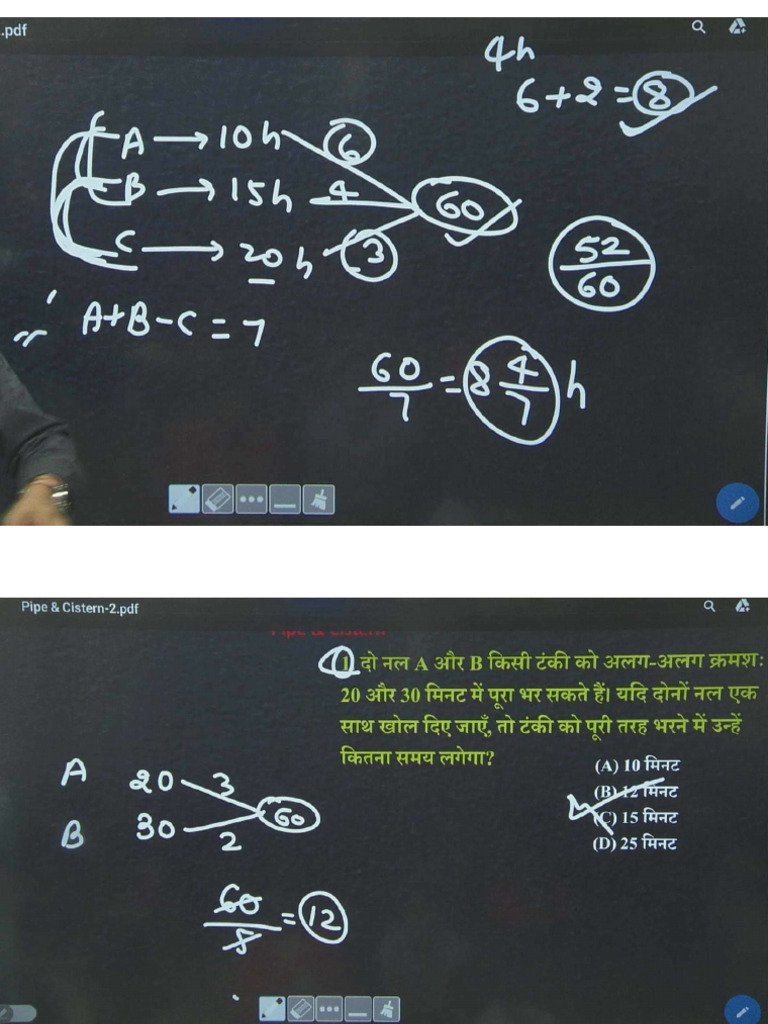 .pdf
4h
6+2=8
A → 10h 6
B → 15h 4 60
C → 20h 3
52/60
A+B-C=7
60/7 = 8 4/7 h
Pipe & Cistern-2.pdf
Pipe & Cistern
1. दो नल A और B किसी टंकी को अलग-अलग क्रमशः
20 और 30 मिनट में पूरा भर सकते हैं। यदि दोनों नल एक
साथ खोल दिए जाएँ, तो टंकी को पूरी तरह भरने में उन्हें
कितना समय लगेगा?
(A) 10 मिनट
(B) 12 मिनट
(C) 15 मिनट
(D) 25 मिनट
A 20 3
60
B 30 2
60/5 = 12